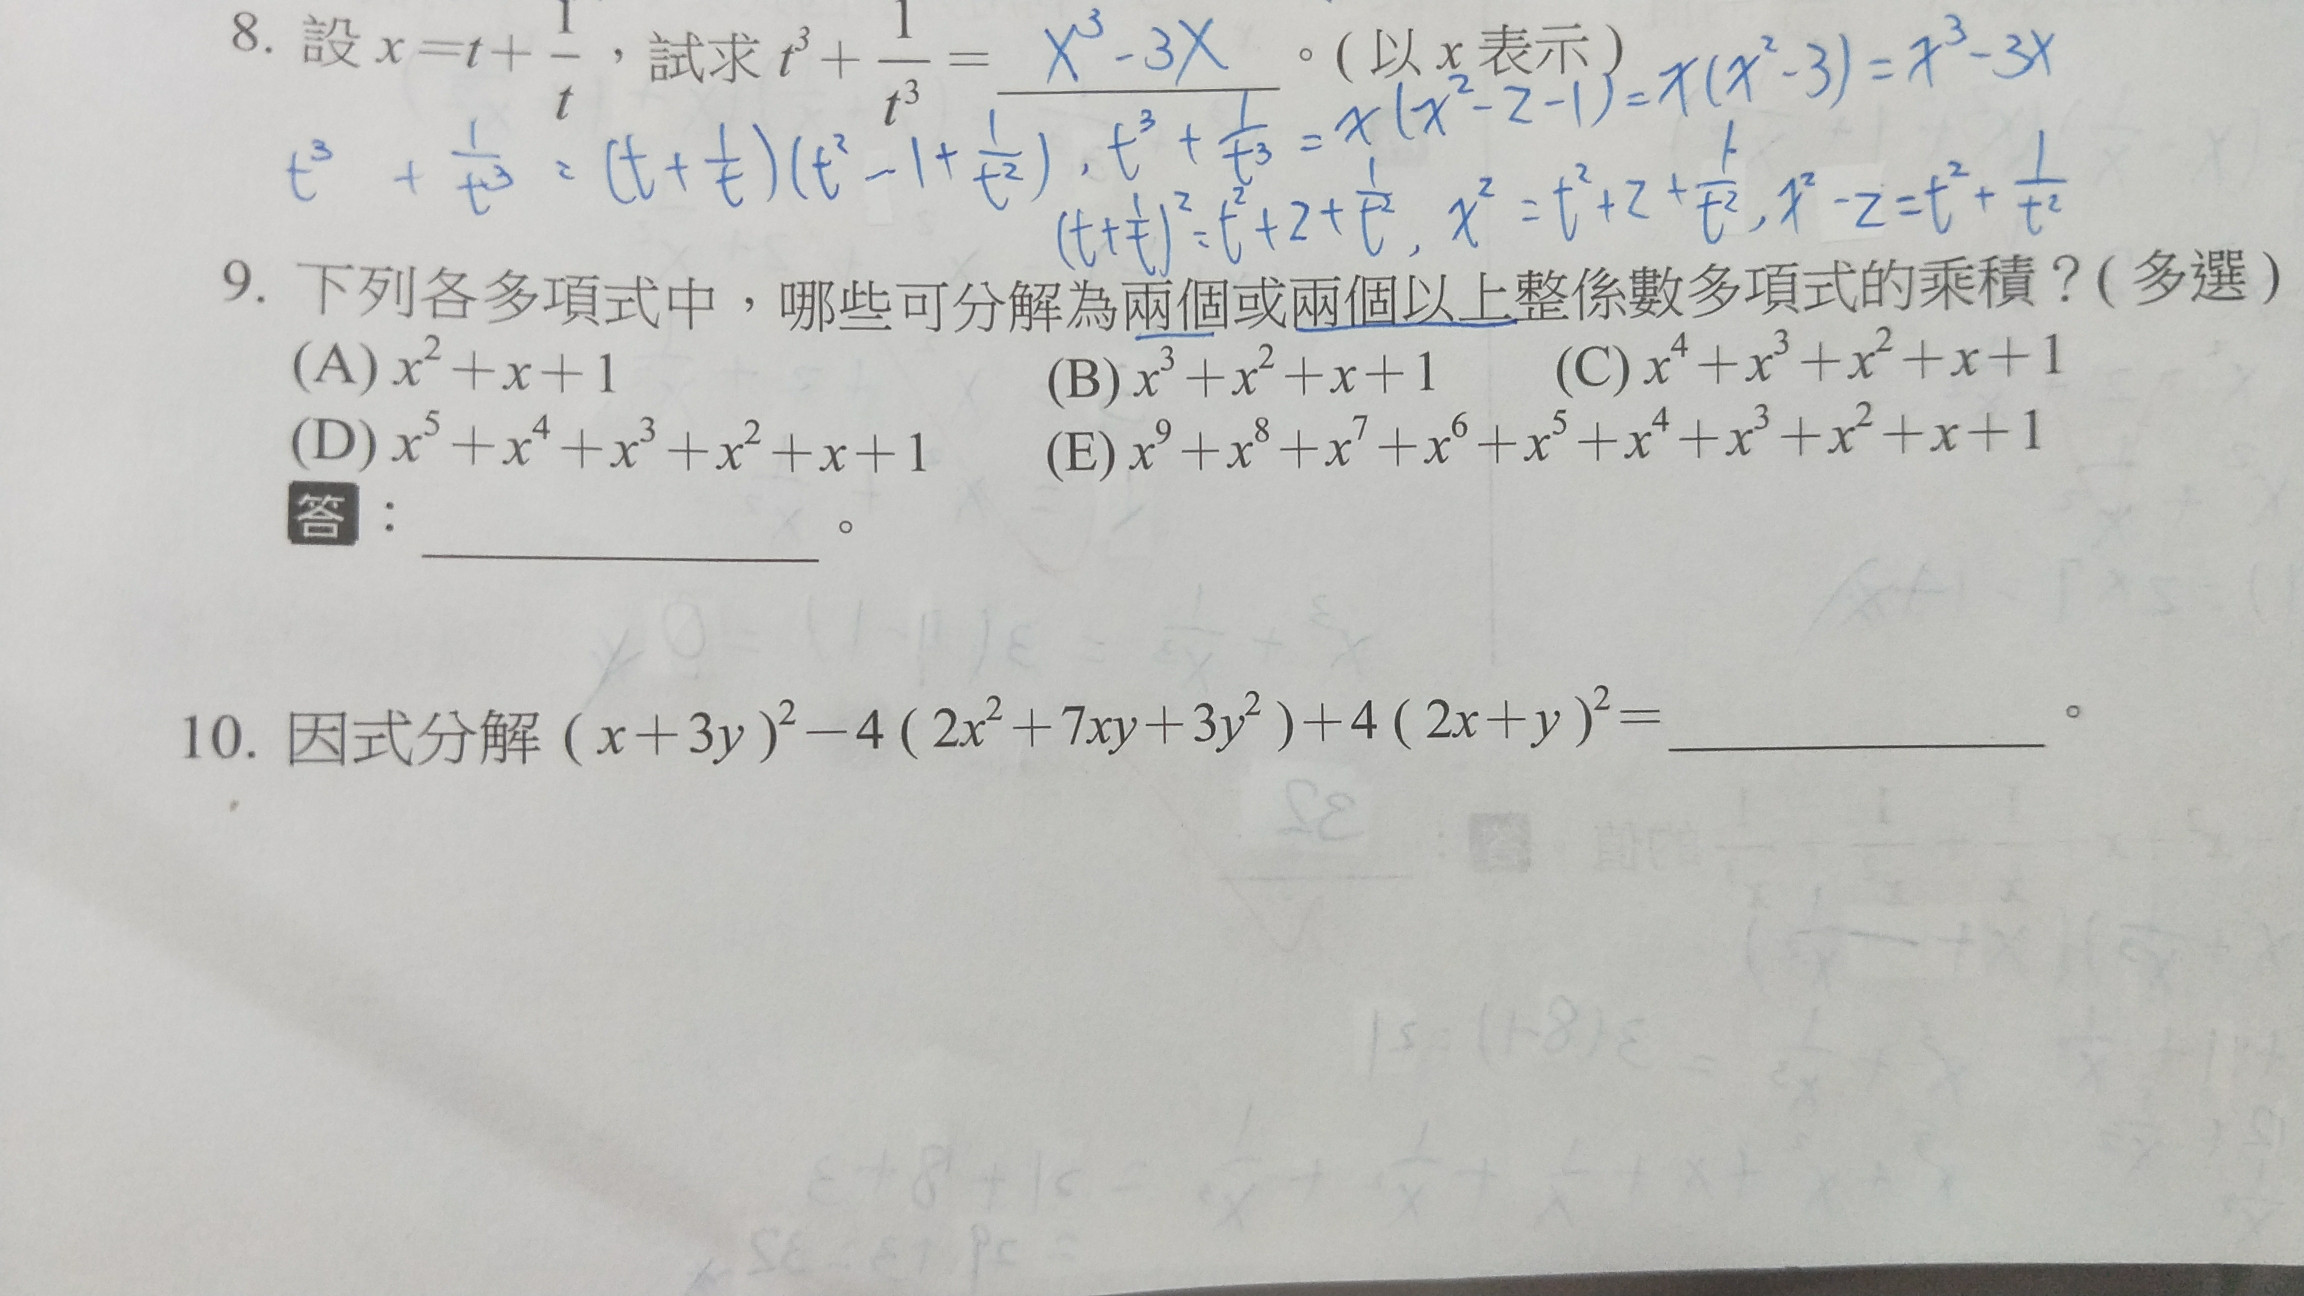 8. 設 x=t+1/t，試求 t³+1/t³=x³-3x。(以 x 表示)
t³ + 1/t³ = (t+1/t)(t²-1+1/t²), t³+1/t³=x(x²-2-1)=x(x²-3)=x³-3x
(t+1/t)²=t²+2+1/t², x²=t²+2+1/t², x²-2=t²+1/t²
9. 下列各多項式中，哪些可分解為兩個或兩個以上整係數多項式的乘積？(多選)
(A) x²+x+1 (B) x³+x²+x+1 (C) x⁴+x³+x²+x+1
(D) x⁵+x⁴+x³+x²+x+1 (E) x⁹+x⁸+x⁷+x⁶+x⁵+x⁴+x³+x²+x+1
答：________。
10. 因式分解 (x+3y)²-4(2x²+7xy+3y²)+4(2x+y)²=________。